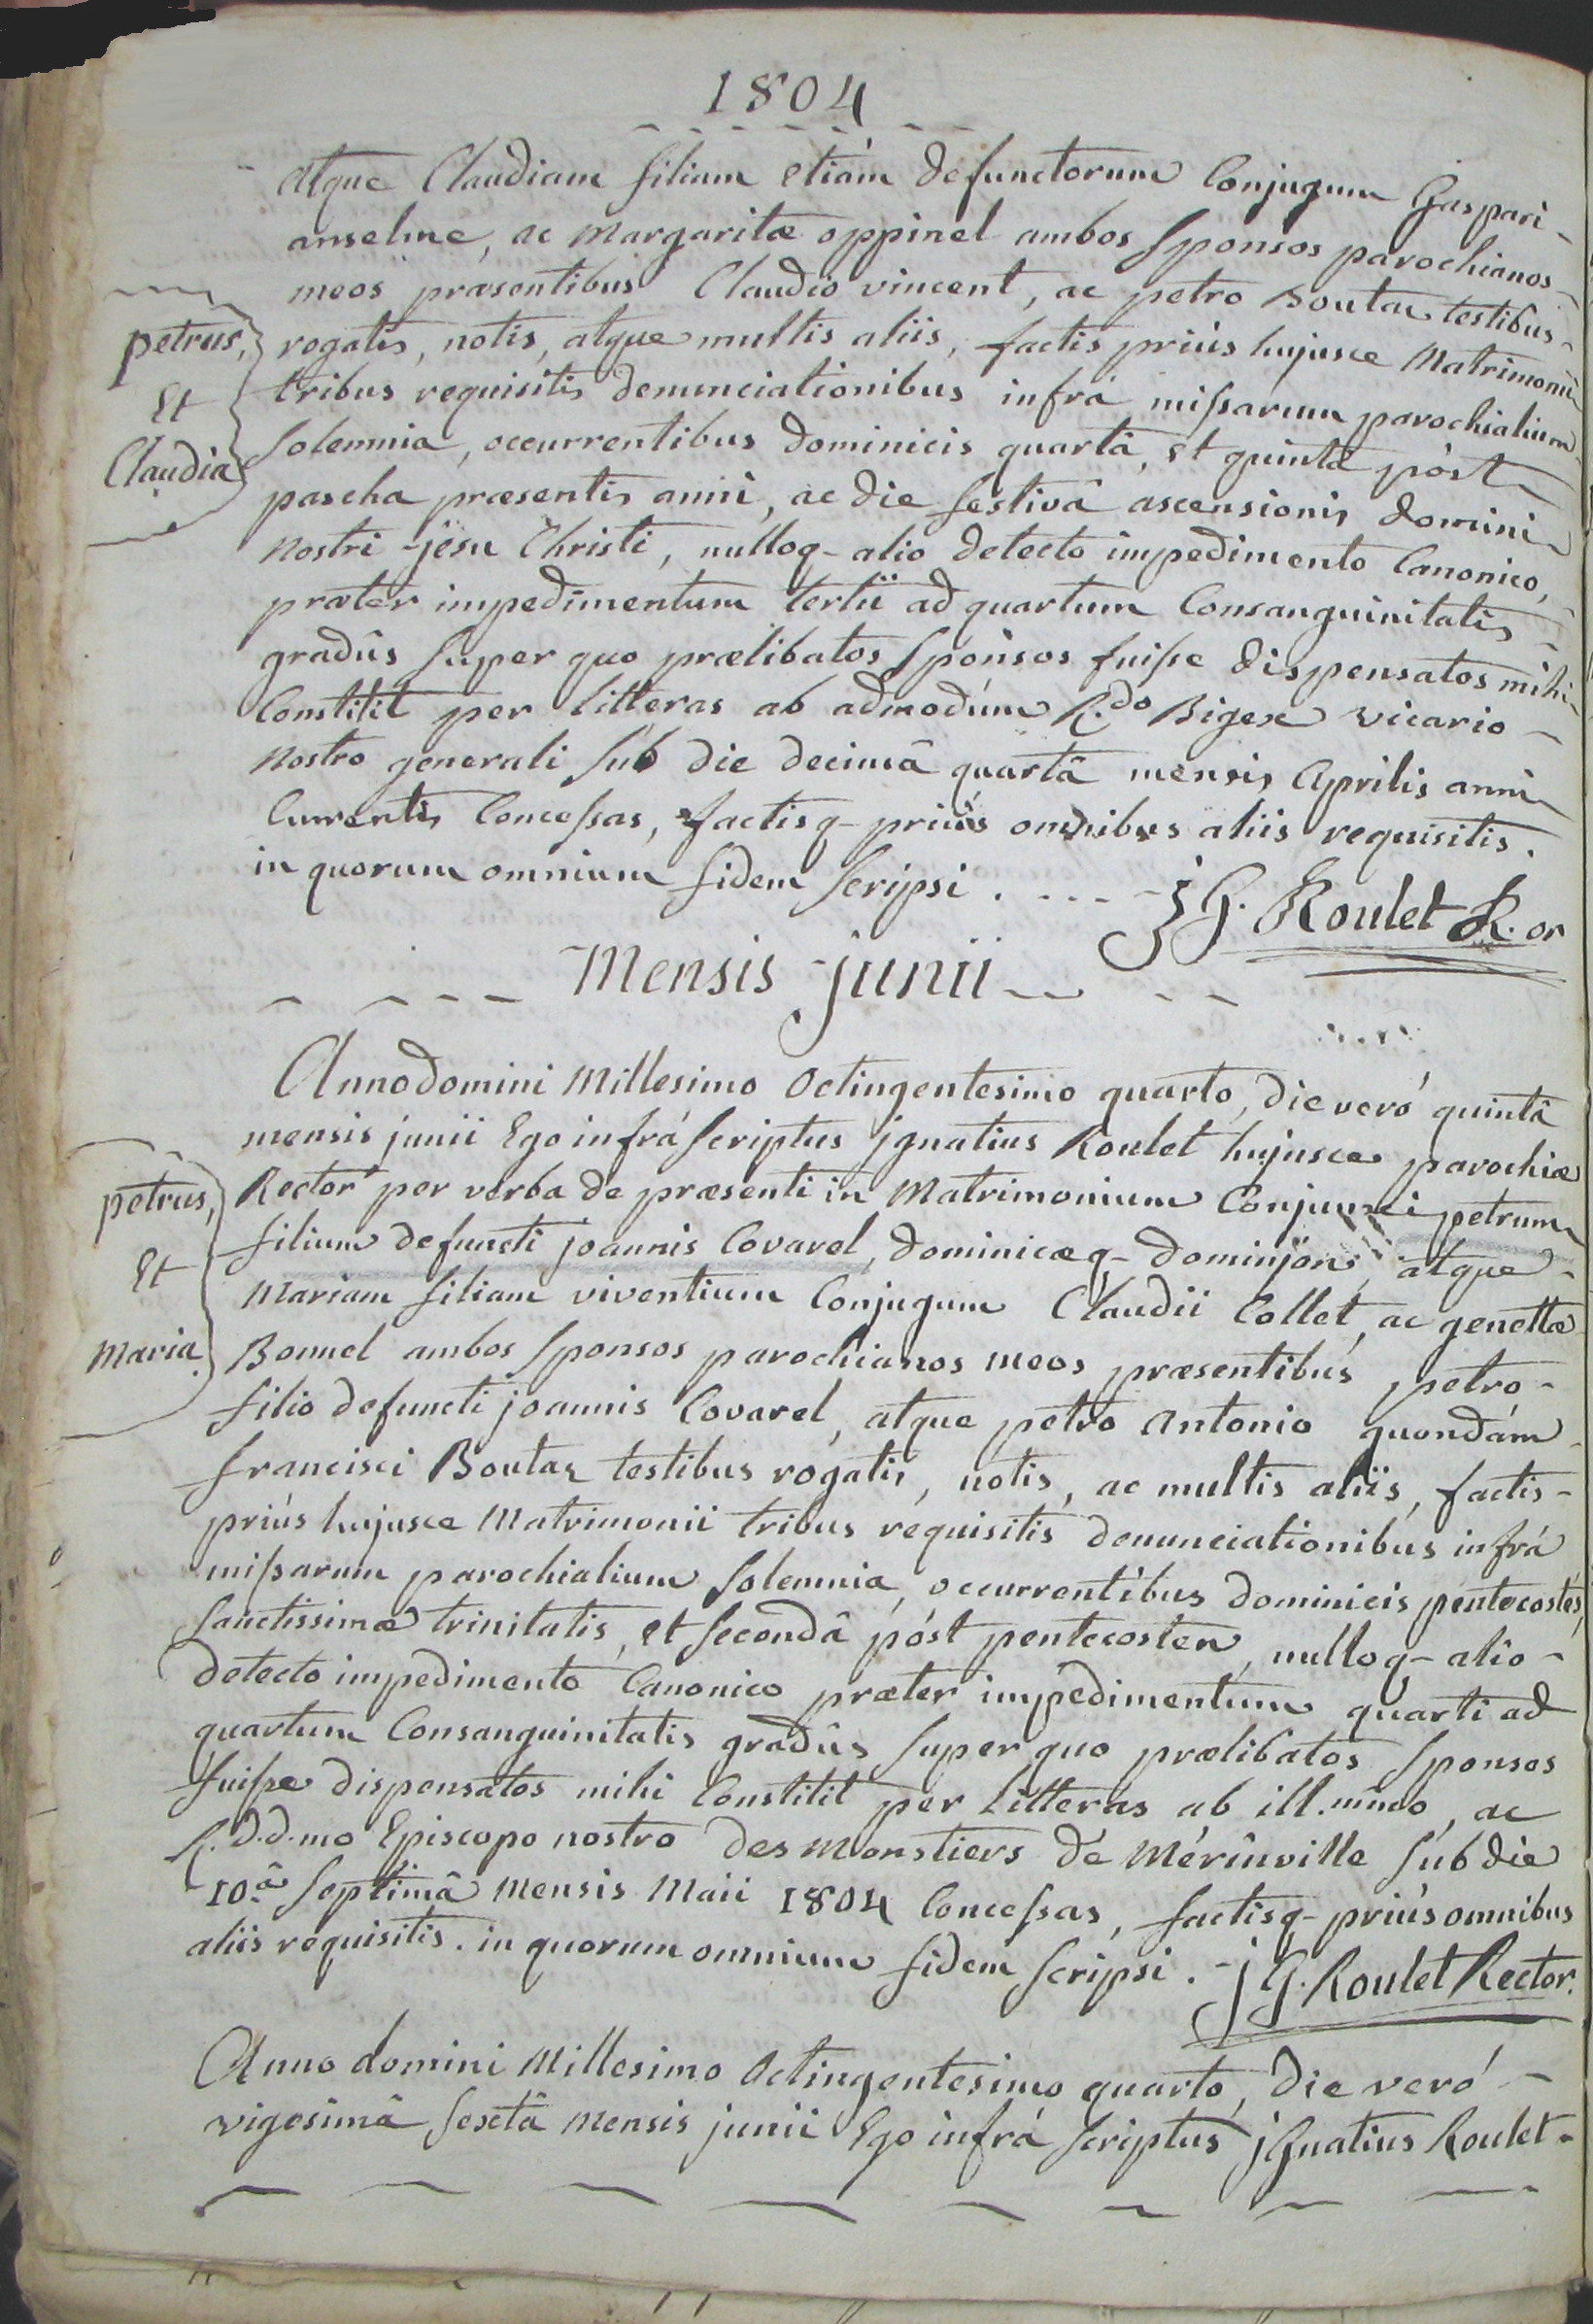 1804
atque Claudiam filiam etiám defunctorum Conjugum Gaspari
anselme, ac Margaritæ oppinel ambos Sponsos parochianos
meos præsentibus Claudio vincent, ac petro Boutaz testibus
petrus, Et Claudia
rogatis, notis, atque multis aliis, factis priús hujusce Matrimonii
tribus requisitis denunciationibus infrá mißarum parochialium
Solemnia, occurrentibus Dominicis quartâ, et quintâ póst
pascha præsentis anni, ac die festivâ ascensionis Domini
Nostri jesu Christi, nulloq- alio detecto impedimento Canonico,
præter impedimentum tertii ad quartum Consanguinitatis
gradûs Super quo prælibatos Sponsos fuiße dispensatos mihi
Constitit per litteras ab admodúm R.do Bigex vicario
Nostro generali Sub die decimâ quartâ mensis Aprilis anni
Currentis Conceßas, factisq- priús omnibus aliis requisitis.
in quorum omnium fidem Scripsi. j G. Roulet R.or
Mensis junii
Anno domini Millesimo Octingentesimo quarto, die veró quintâ
mensis junii Ego infrá Scriptus jgnatius Roulet hujusce parochiæ
petrus, Et Maria.
Rector per verba de præsenti in Matrimonium Conjunxi petrum
filium defuncti joannis Covarel, Dominicæq- Dominjon, atque
Mariam filiam viventium Conjugum Claudii Collet, ac genettæ
Bonnel ambos Sponsos parochianos meos præsentibus petro
filio defuncti joannis Covarel, atque petro Antonio quondám
francisci Boutaz testibus rogatis, notis, ac multis aliis, factis
priús hujusce Matrimonii tribus requisitis denunciationibus infrá
mißarum parochialium Solemnia, occurrentibus Dominicis pentecostes,
Sanctissimæ trinitatis, et Secondâ póst pentecosten, nulloq- alio
detecto impedimento Canonico præter impedimentum quarti ad
quartum Consanguinitatis gradûs Super quo prælibatos Sponsos
fuiße dispensatos mihi Constitit per litteras ab ill.mmo, ac
R. D.d.mo Episcopo nostro des Monstiers de Mérinville Súb die
10.â Septimâ Mensis Maii 1804 Conceßas, factisq- priús omnibus
aliis requisitis. in quorum omnium fidem Scripsi. j G. Roulet Rector.
Anno domini Millesimo Octingentesimo quarto, Die veró
vigesimâ Sextâ Mensis junii Ego infrá Scriptus jgnatius Roulet